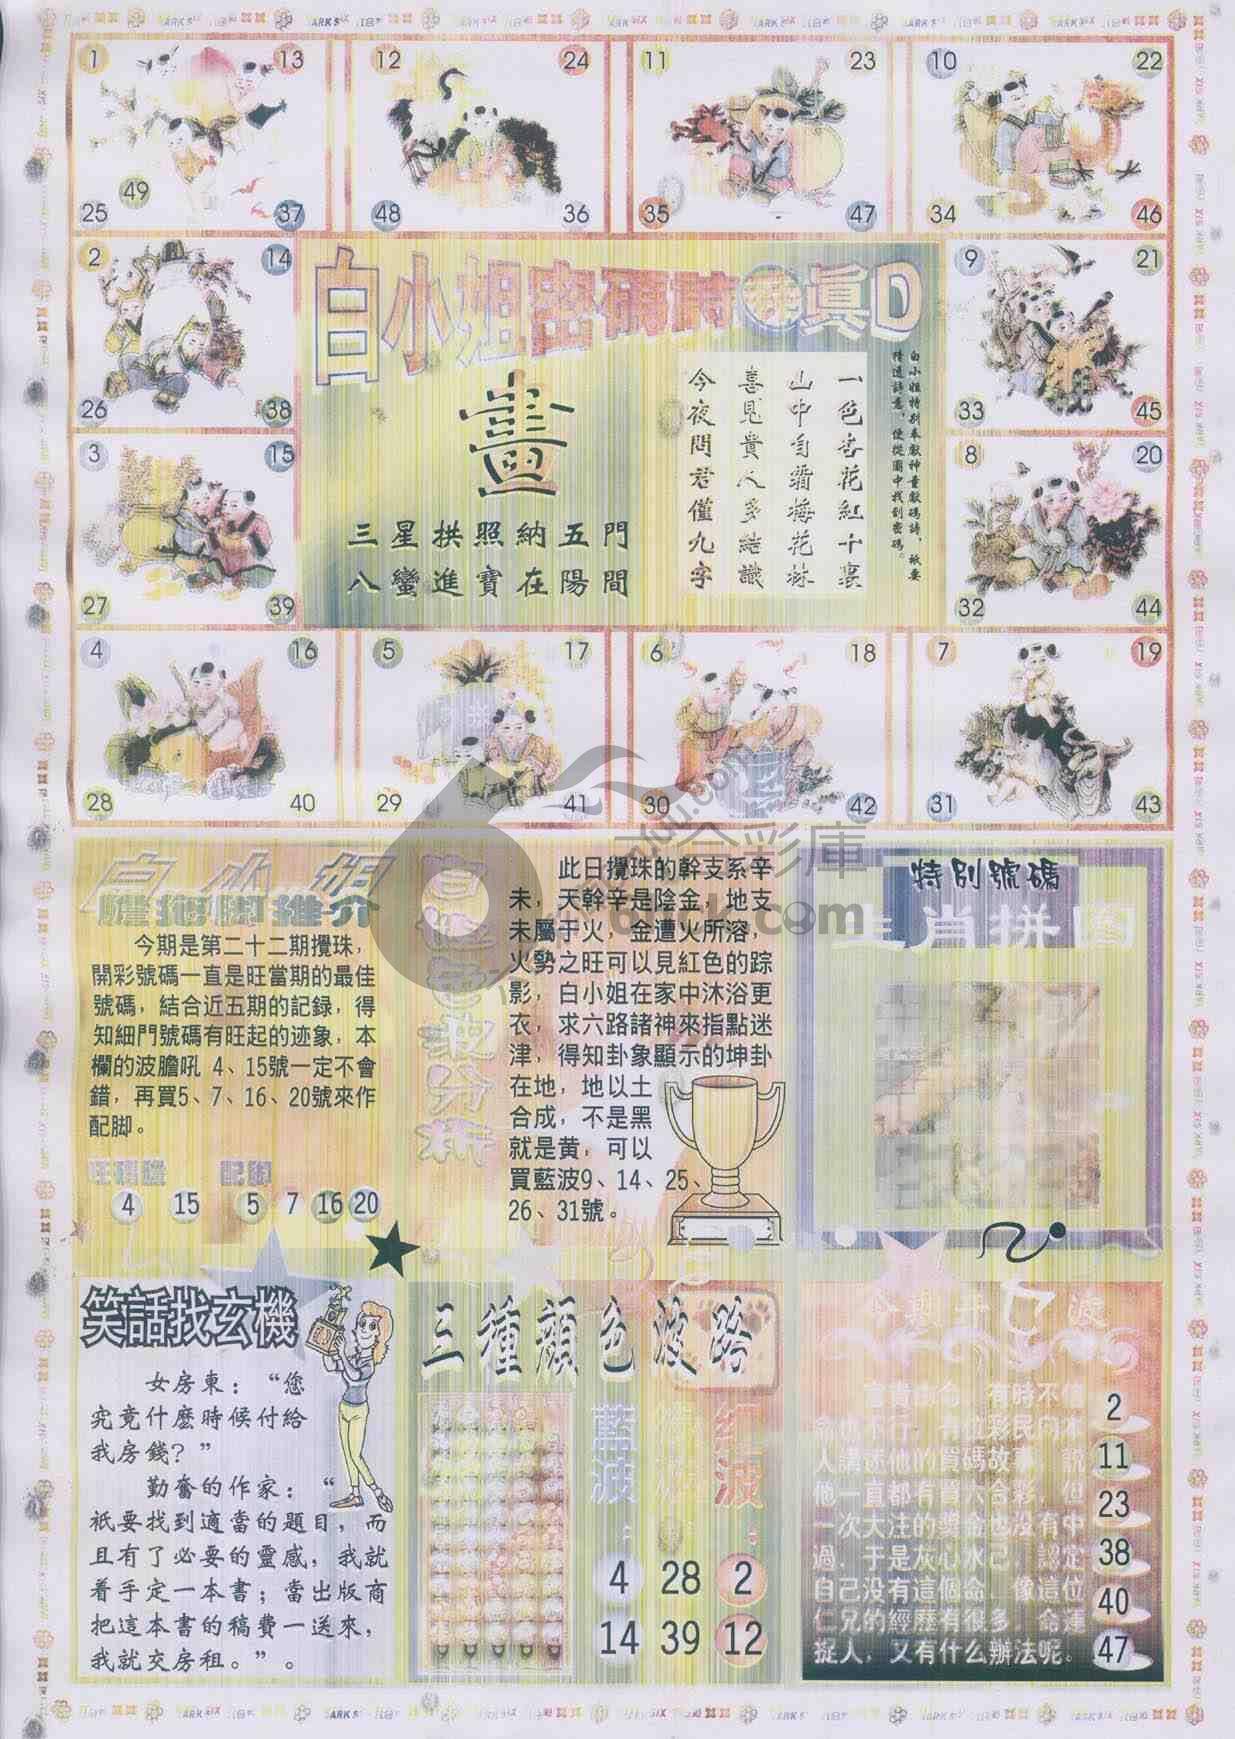 1 13 12 24 11 23 10 22
25 49 37 48 36 35 47 34 46
2 14
26 38
白小姐密碼詩
真D
畫
三星拱照納五門
八蠻進寶在陽間
一色杏花紅十裏
山中自霜梅花林
喜見貴人多結識
今夜問君僅九字
白小姐特別奉獻神童獻碼詩，祇要
精通詩意，便從圖中找到密碼。
9 21
33 45
3 15
27 39
8 20
32 44
4 16 5 17 6 18 7 19
28 40 29 41 30 42 31 43
白小姐
膽拖脚推介
今期是第二十二期攪珠，
開彩號碼一直是旺當期的最佳
號碼，結合近五期的記録，得
知細門號碼有旺起的迹象，本
欄的波膽吼 4、15號一定不會
錯，再買5、7、16、20號來作
配脚。
旺碼膽 配脚
4 15 5 7 16 20
色波分析
此日攪珠的幹支系辛
未，天幹辛是陰金，地支
未屬于火，金遭火所溶，
火勢之旺可以見紅色的踪
影，白小姐在家中沐浴更
衣，求六路諸神來指點迷
津，得知卦象顯示的坤卦
在地，地以土
合成，不是黑
就是黄，可以
買藍波9、14、25、
26、31號。
特别號碼
生肖拼圖
六合彩庫
笑話找玄機
女房東：“您
究竟什麽時候付給
我房錢？”
勤奮的作家：“
祇要找到適當的題目，而
且有了必要的靈感，我就
着手定一本書；當出版商
把這本書的稿費一送來，
我就交房租。”。
三種顔色波路
藍波：
4
14
28
39
红波：
2
12
人講述他的買碼故事，說
他一直都有買六合彩，但
一次大注的獎金也没有中
過，于是灰心水己，認定
自己没有這個命，像這位
仁兄的經歷有很多，命運
捉人，又有什么辦法呢。
2
11
23
38
40
47